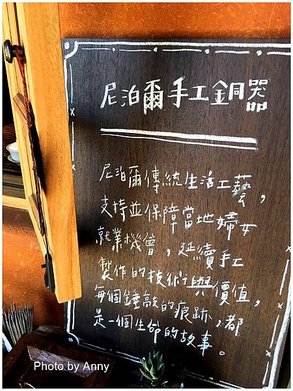 尼泊爾手工銅器
尼泊爾傳統生活工藝，
支持並保障當地婦女
就業機會，延續手工
製作的技術與價值，
每個錘敲的痕跡，都
是一個生命的故事。
Photo by Anny